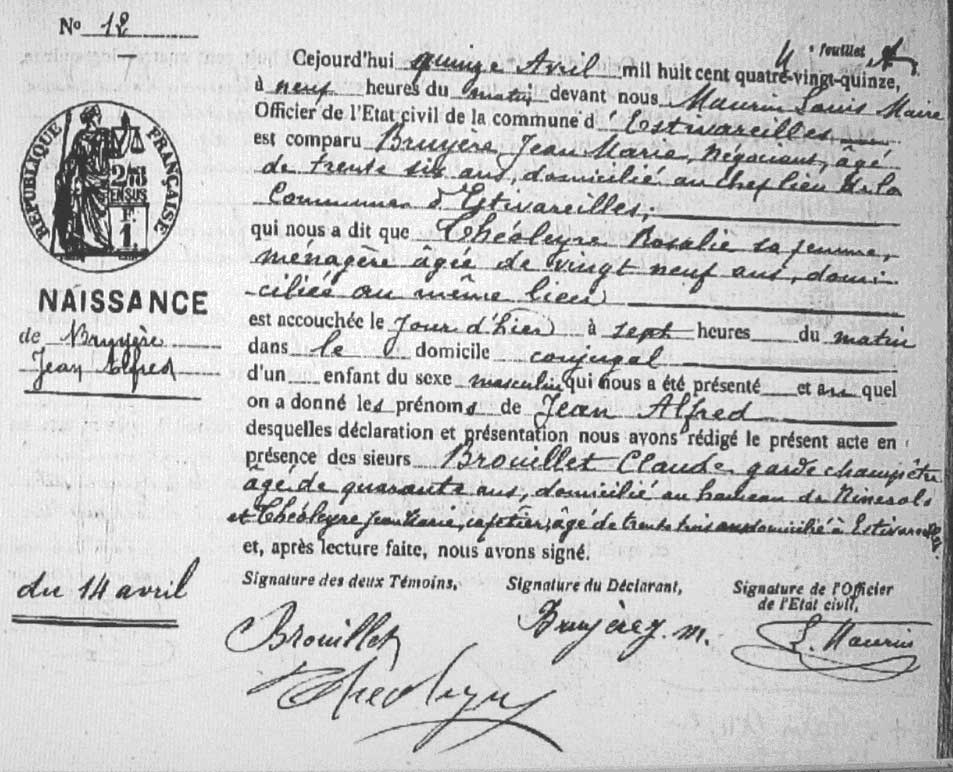 No 12
4e feuillet
Cejourd'hui quinze Avril mil huit cent quatre-vingt-quinze,
à neuf heures du matin devant nous Maurin Louis Maire
Officier de l'Etat civil de la commune d'Estivareilles
est comparu Bruyère Jean Marie, négociant, âgé
de trente six ans, domicilié au chef lieu de la
Commune d'Estivareilles;
qui nous a dit que Théoleyre Rosalie sa femme,
ménagère âgée de vingt neuf ans, domi-
-ciliée au même lieu
est accouchée le jour d'hier à sept heures du matin
dans le domicile conjugal
d'un enfant du sexe masculin qui nous a été présenté et au quel
on a donné les prénoms de Jean Alfred
desquelles déclaration et présentation nous avons rédigé le présent acte en
présence des sieurs Brouillet Claude garde champêtre
âgé de quarante ans, domicilié au hameau de
et Théoleyre Jean Marie, cafetier, âgé de trente trois ans domicilié à Estivareilles
et, après lecture faite, nous avons signé.
RÉPUBLIQUE FRANÇAISE
2/10
EN SUS
F.
1
NAISSANCE
de Bruyère
Jean Alfred
du 14 avril
Signature des deux Témoins,
Signature du Déclarant,
Signature de l'Officier
de l'Etat civil,
Brouillet
Théoleyre
Bruyère J. M.
L. Maurin